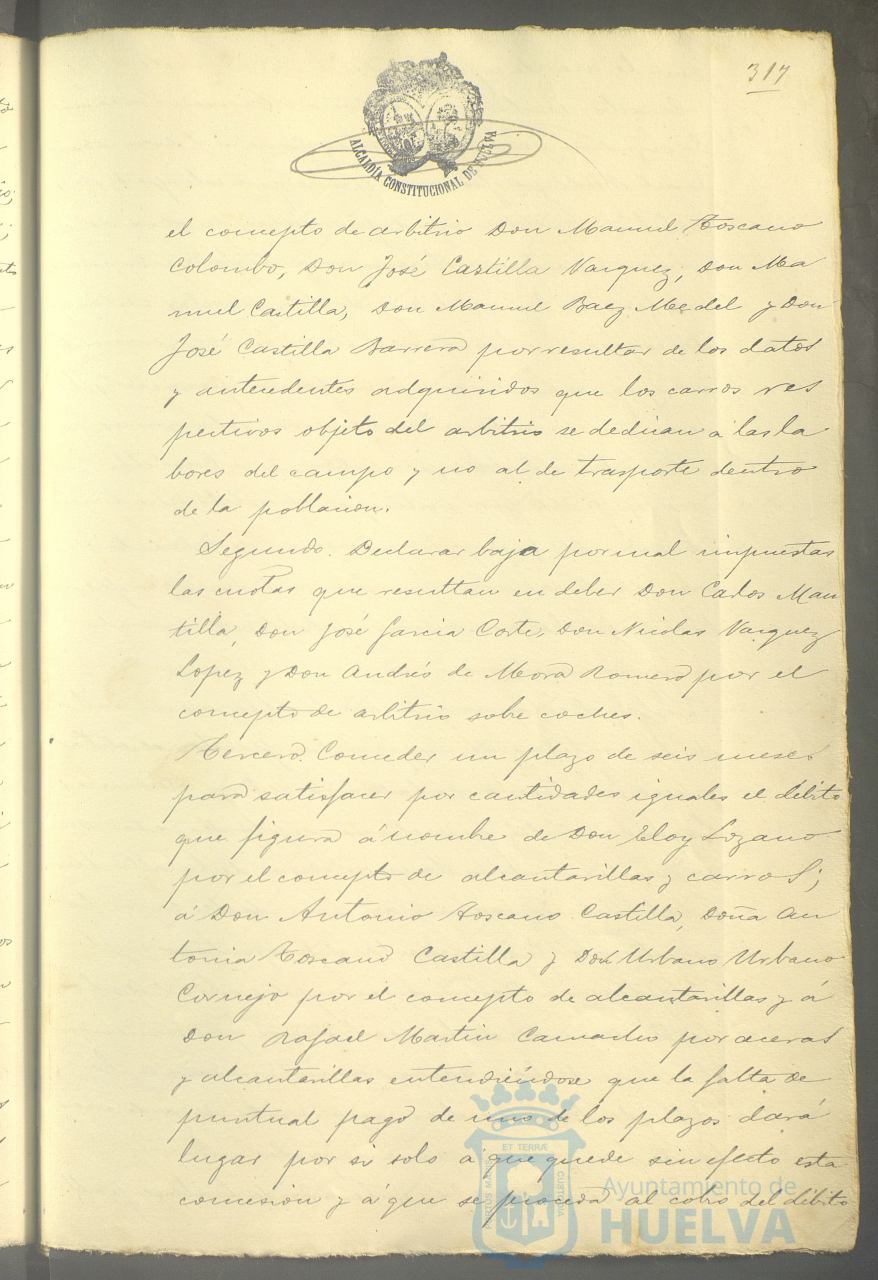 317
ALCALDÍA CONSTITUCIONAL DE HUELVA
el concepto de arbitrio Don Manuel Toscano
Colombo, Don José Castilla Vazquez, Don Ma
nuel Castilla, Don Manuel Baez Medel y Don
José Castilla Barrera por resultar de los datos
y antecedentes adquiridos que los carros res
pectivos objeto del arbitrio se dedican á las la
bores del campo y no al de trasporte dentro
de la poblacion.
Segundo. Declarar baja por mal impuestas
las cuotas que resultan en deber Don Carlos Man
tilla, Don José Garcia Corte, Don Nicolas Vazquez
Lopez y Don Andrés de Mora Romero por el
concepto de arbitrio sobre coches.
Tercero. Conceder un plazo de seis meses
para satisfacer por cantidades iguales el débito
que figura á nombre de Don Eloy Lozano
por el concepto de alcantarillas y carros;
á Don Antonio Toscano Castilla, Doña An
tonia Toscano Castilla y Don Urbano Urbano
Cornejo por el concepto de alcantarillas y á
Don Rafael Martin Camacho por aceras
y alcantarillas entendiéndose que la falta de
puntual pago de uno de los plazos dará
lugar por si solo á que quede sin efecto esta
concesion y á que se proceda al cobro del débito
ET TERRÆ
Ayuntamiento de
HUELVA